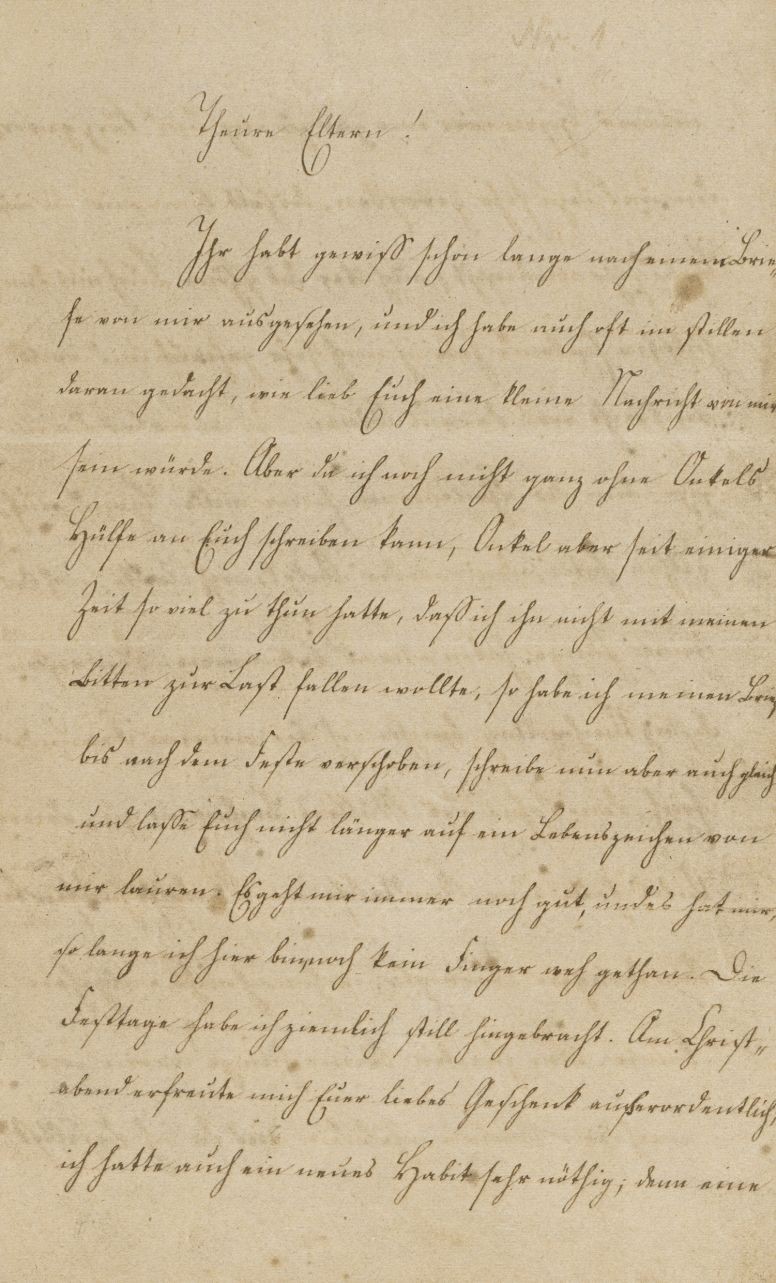 Nr. 1.
Theure Eltern!
Ihr habt gewiß schon lange nach einem Brie-
fe von mir ausgesehen, und ich habe auch oft im stillen
daran gedacht, wie lieb Euch eine kleine Nachricht von mir
sein würde. Aber da ich noch nicht ganz ohne Onkels
Hülfe an Euch schreiben kann, Onkel aber seit einiger
Zeit so viel zu thun hatte, daß ich ihn nicht mit meinen
Bitten zur Last fallen wollte, so habe ich meinen Brief
bis nach dem Feste verschoben, schreibe nun aber auch gleich
und lasse Euch nicht länger auf ein Lebenszeichen von
mir lauren. Es geht mir immer noch gut, und es hat mir,
so lange ich hier bin, noch kein Finger weh gethan. Die
Festtage habe ich ziemlich still hingebracht. Am Christ-
abend erfreute mich Euer liebes Geschenk außerordentlich,
ich hatte auch ein neues Habit sehr nöthig; denn eine